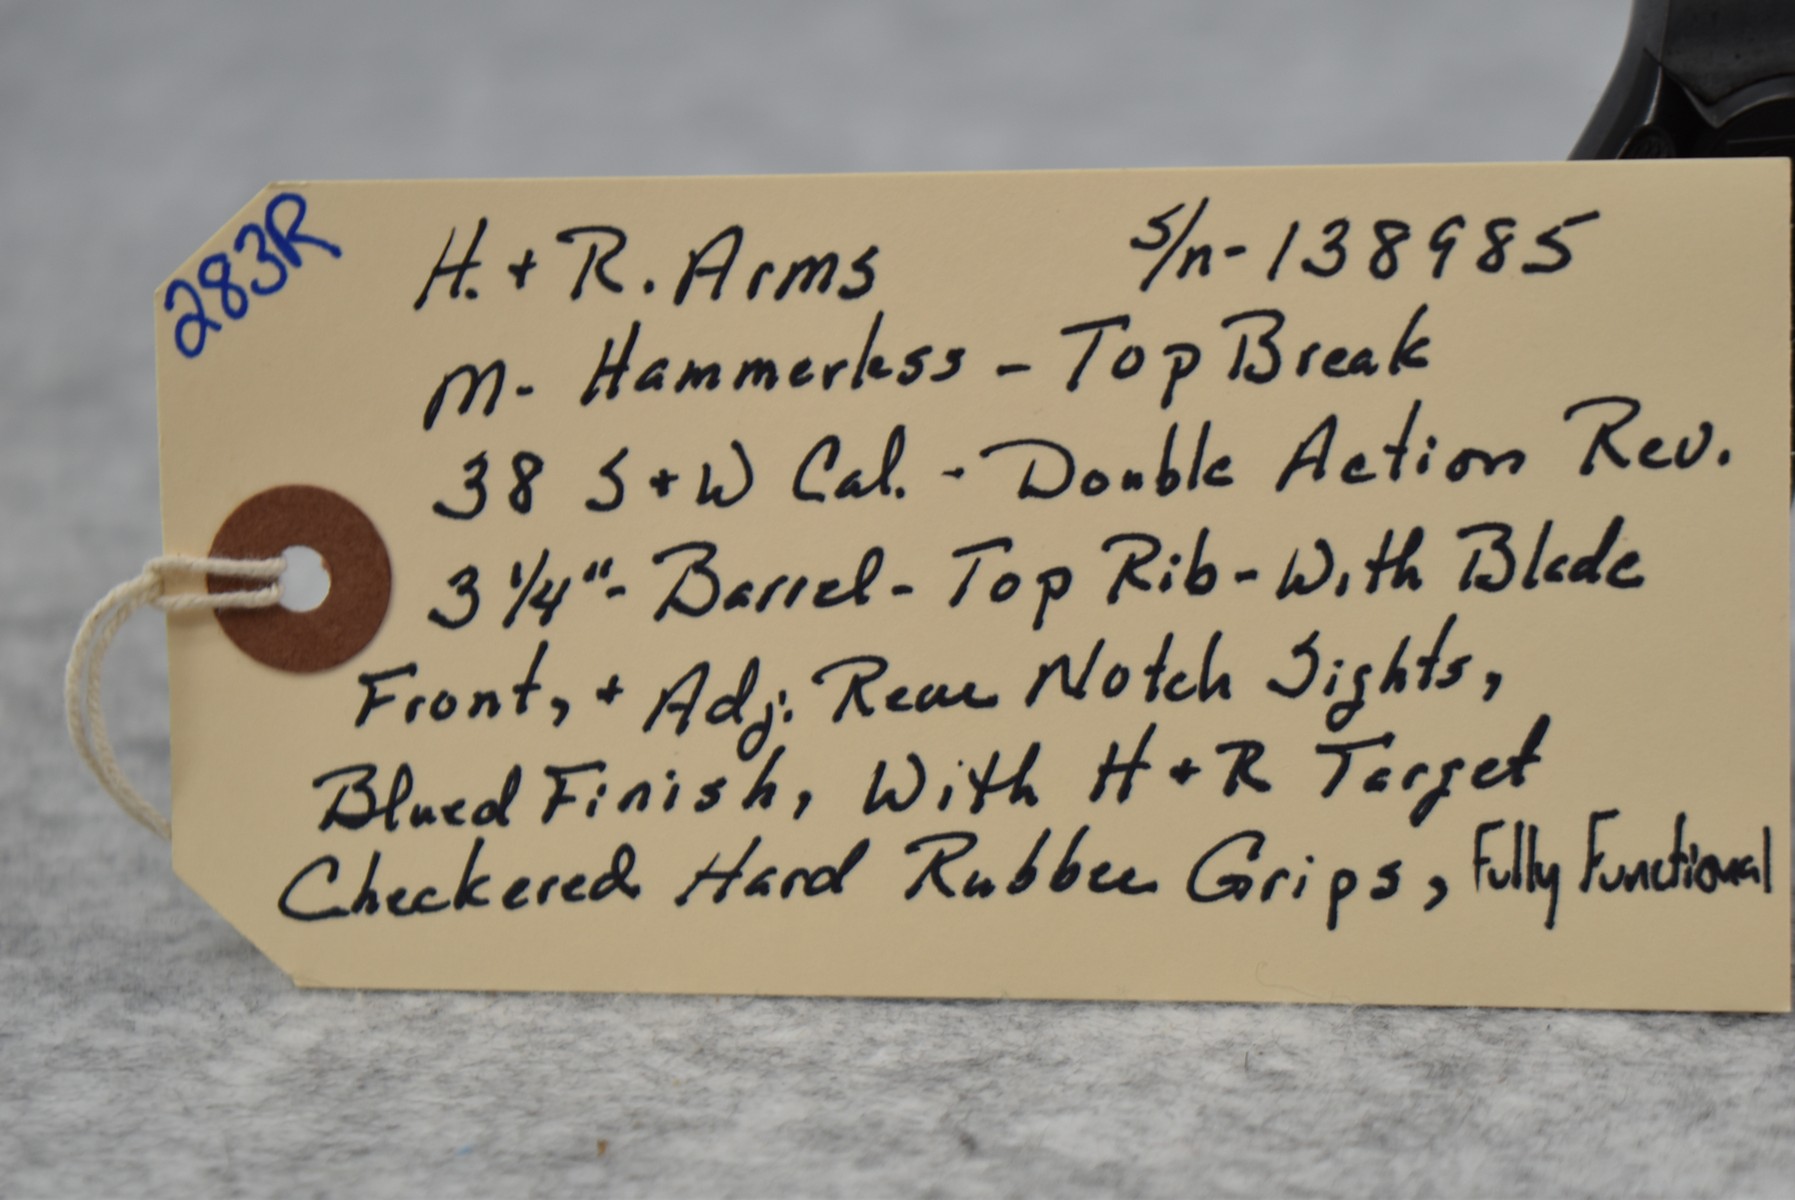 283R
H. + R. Arms s/n- 138985
M- Hammerless - Top Break
38 S + W Cal. - Double Action Rev.
3 1/4" - Barrel - Top Rib - With Blade
Front, + Adj. Rear Notch Sights,
Blued Finish, With H + R Target
Checkered Hard Rubber Grips, Fully Functional